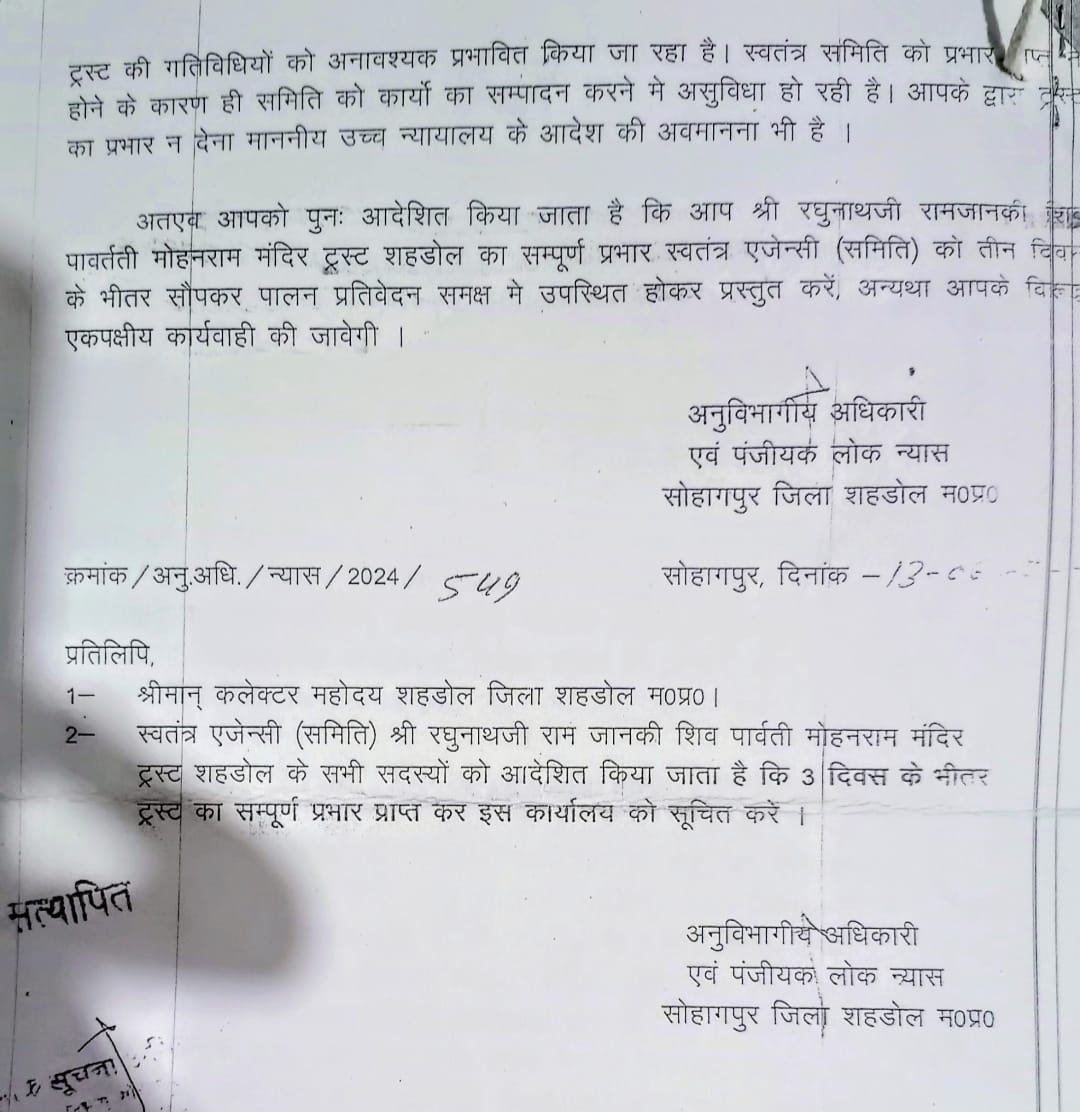 ट्रस्ट की गतिविधियों को अनावश्यक प्रभावित किया जा रहा है। स्वतंत्र समिति को प्रभार
होने के कारण ही समिति को कार्यो का सम्पादन करने मे असुविधा हो रही है। आपके द्वारा ट्रस्ट
का प्रभार न देना माननीय उच्च न्यायालय के आदेश की अवमानना भी है ।
अतएव आपको पुनः आदेशित किया जाता है कि आप श्री रघुनाथजी रामजानकी
पावर्तती मोहनराम मंदिर ट्रस्ट शहडोल का सम्पूर्ण प्रभार स्वतंत्र एजेन्सी (समिति) को तीन
के भीतर सौपकर पालन प्रतिवेदन समक्ष मे उपस्थित होकर प्रस्तुत करें, अन्यथा आपके
एकपक्षीय कार्यवाही की जावेगी ।
अनुविभागीय अधिकारी
एवं पंजीयक लोक न्यास
सोहागपुर जिला शहडोल म0प्र0
क्रमांक / अनु.अधि. / न्यास / 2024 / 549
सोहागपुर, दिनांक -13-
प्रतिलिपि,
1- श्रीमान् कलेक्टर महोदय शहडोल जिला शहडोल म0प्र0।
2- स्वतंत्र एजेन्सी (समिति) श्री रघुनाथजी राम जानकी शिव पार्वती मोहनराम मंदिर
ट्रस्ट शहडोल के सभी सदस्यों को आदेशित किया जाता है कि 3 दिवस के भीतर
ट्रस्ट का सम्पूर्ण प्रभार प्राप्त कर इस कार्यालय को सूचित करें ।
सत्यापित
अनुविभागीय अधिकारी
एवं पंजीयक लोक न्यास
सोहागपुर जिला शहडोल म0प्र0
सूचना